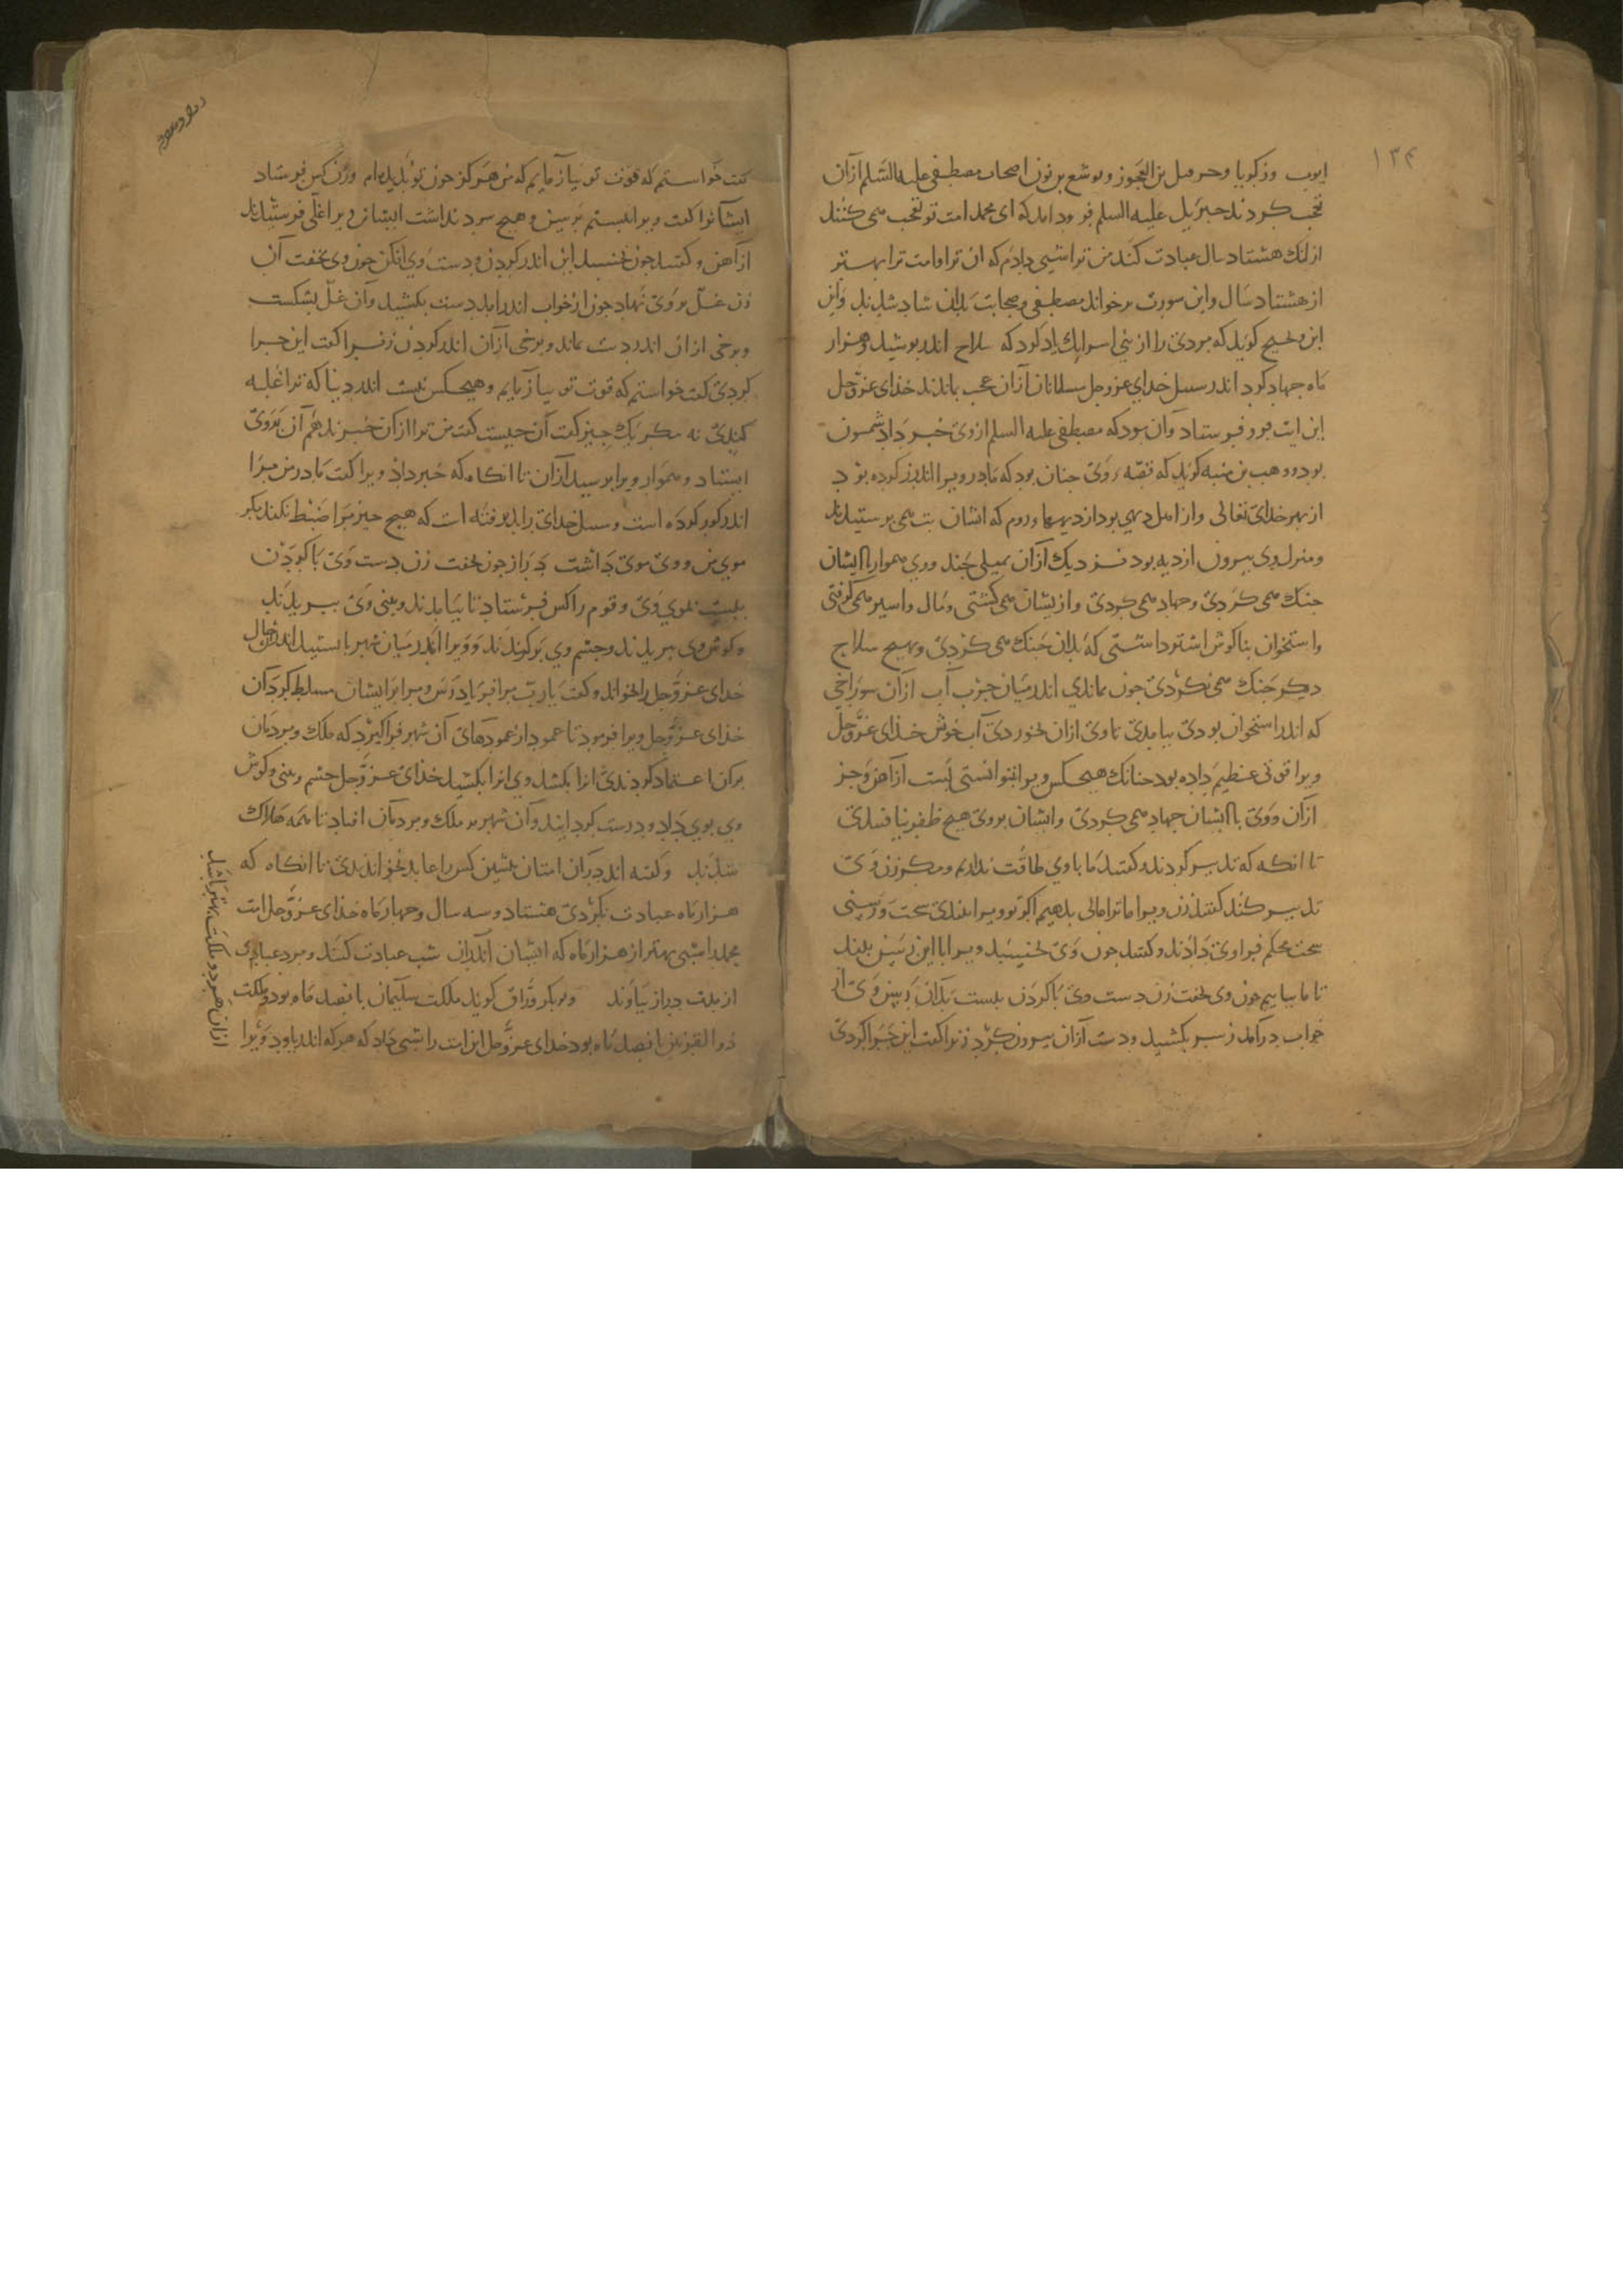 ۱۳۴
ایوب و زکریا و حزقیل بن العجوز و یوشع بن نون اصحاب مصطفی علیه السلم ازان
تعجب کردند جبرئیل علیه السلم فرود امد که ای محمد امت تو تعجب می کنند
ازنک هشتاد سال عبادت کنند من ترا شبی دادم که ان ترا وامت ترا بهتر
از هشتاد سال واین سورت برخواند مصطفی وصحابت بدان شاد شدند وابن
ابی نجیح کوید که مردی را از بنی اسرایل یاد کرد که سلاح اندر بوشید وهزار
ماه جهاد کرد اندر سبیل خدای عزوجل مسلمانان ازان عجب بماندند خدای عزوجل
این ایت فرو فرستاد وان بود که مصطفی علیه السلم ازوی خبر داد شمسون
بود ووهب بن منبه کوید که قصه وی جنان بود که مادر ویرا اندر کرده بود
از بهر خدای تعالی واز اهل دیهی بود از دیهها روم که ایشان بت می برستیدند
ومنزل وی بیرون از دیه بود نزدیک ازان بمیلی جند ووی هموار با ایشان
جنک می کردی وجهاد می کردی وازیشان می کشتی ومال واسیر می کرفتی
واستخوان بناکوش اشتر داشتی که بدان جنک می کردی وبهیج سلاح
دیکر جنک می نکردی جون بماندی اندر میان حرب آب ازان سوراخی
که اندر استخوان بودی بیامدی تا وی ازان بخوردی آب خوش خدای عزوجل
ویرا قوتی عظیم داده بود جنانک هیجکس ویرا نتوانستی بست از آهن وجز
ازان ووی با ایشان جهاد می کردی وایشان بروی هیج ظفر نیافتندی
تا انکه که تدبیر کردند وکفتند ما باوی طاقت نداریم ومکر زن وی
تدبیر کند کفتند زن ویرا ما ترا مالی بدهیم اکر تو ویرا ببندی سخت ورسنی
سخت محکم فراوی دادند وکفتند جون وی بخسبد ویرا با این رسن ببند
تا ما بیاییم جون وی بخفت زن دست وی با کردن ببست بدان رسن وی از
خواب درآمد رسن بکشید ودست ازان بیرون کرد زنرا کفت این جرا کردی
کفت خواستم که قوت تو بیازمایم که من هرکز جون تو ندیده ام وزن کس فرستاد
ایشانرا کفت ویرا ببستم برسن وهیج سود نداشت ایشان ویرا غلی فرستیدند
ازاهن وکفتند جون بخسبد این اندر کردن ودست وی افکن جون وی بخفت آن
زن غل بر وی نهاد جون از خواب اندرامد دست بکشید وان غل بشکست
وبرخی ازان اندر دست بماند وبرخی ازان اندر کردن زنرا کفت این جرا
کردی کفت خواستم که قوت تو بیازمایم وهیجکس نیست اندر دنیا که ترا غلبه
کندی نه مکر یک جیز کفت آن جیست کفت من ترا ازان خبر ندهم آن بروی
ایستاد وهموار ویرا برسید ازان تا انکاه که خبر داد ویرا کفت مادر من مرا
اندر کور کرده است وسبیل خدای را بدیرفته است که هیج جیز مرا ضبط نکند مکر
موی من ووی موی داشت دراز جون بخفت زن دست وی با کردن
ببست بموی وی وقوم را کس فرستاد تا بیامدند وبینی وی ببریدند
وکوش وی ببریدند وجشم وی برکندند وویرا اندر میان شهر بایستید اندران حال
خدای عزوجل را بخواند وکفت یا رب مرا فریاد رس ومرا بر ایشان مسلط کردان
خدای عزوجل ویرا فرمود تا عمود از عمودهای آن شهر فراکیرد که ملک ومردمان
بران اعتماد کردندی انرا بکشد وی انرا بکشید خدای عزوجل جشم وبینی وکوش
وی بوی داد ودرست کردانید وآن شهر بر ملک ومردمان افتاد تا همه هلاک
شدند وکفته اند دران امتان بیشین کس را عابد نخواندندی تا انکاه که
هزار ماه عبادت نکردی هشتاد وسه سال وجهار ماه خدای عزوجل امت
محمد را شبی بهتر از هزار ماه که ایشان اندران شب عبادت کنند ومزد عبادت
از مدت دراز بیاوند وبوبکر وراق کوید ملکت سلیمان بانصد ماه بود وملکت
ذوالقرنین بانصد ماه بود خدای عزوجل این امت را شبی داد که هرکه اندر یاود ویرا
ازان هر دو ملکت بهتر باشد